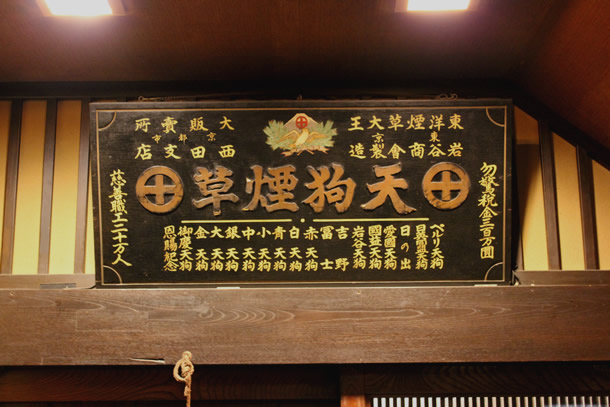 東洋煙草大王
東京
岩谷商會製造
大販賣所
京都市
西田支店
天狗煙草
勿驚税金三百万圓
天狗
天狗
日の出
愛國天狗
國益天狗
岩谷天狗
吉野
冨士
赤天狗
白天狗
青天狗
小天狗
中天狗
銀天狗
大天狗
金天狗
御慶天狗
恩賜記念
慈善職工二十万人